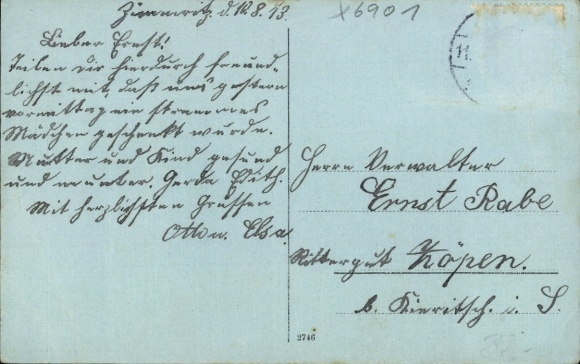 Zimmritz. d. 12.8.13.
X6901
Lieber Ernst!
Teilen Dir hierdurch freund-
lichst mit, daß uns gestern
vormittag ein strammes
Mädchen geschenkt wurde.
Mutter und Kind gesund
und munter. Gerda Edith.
Mit herzlichsten Grüssen
Otto u. Elsa.
Herrn Verwalter
Ernst Rabe
Rittergut Köpen.
b. Kieritzsch. i. S.
2746